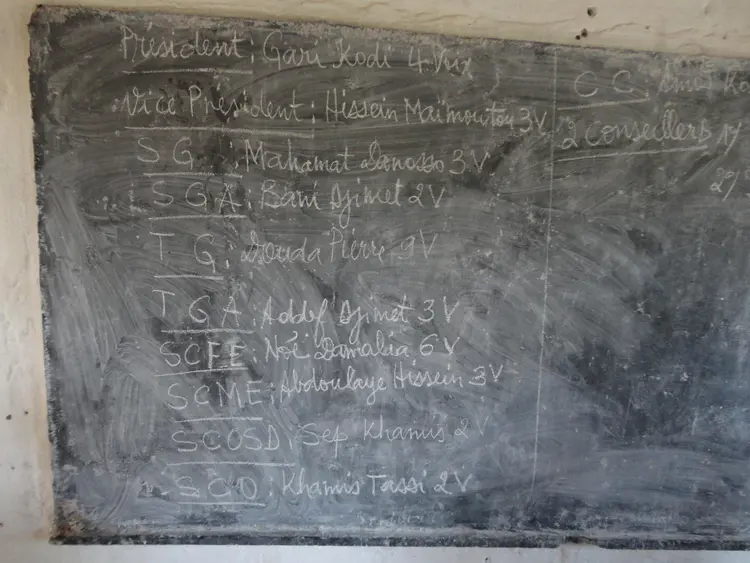 Président : Gari Kodi 4 Voix
Vice Président : Hissein Maïmoutou 3V
S G : Mahamat Danosso 3 V
S G A : Bani Djimet 2 V
T G : Douda Pierre 9 V
T G A : Addef Djimet 3 V
SCFE : Noé Damalia 6 V
SCME : Abdoulaye Hissein 3 V
SCOSD : Sep Khamis 2 V
SCO : Khamis Tassi 2 V
C C :
2 conseillers